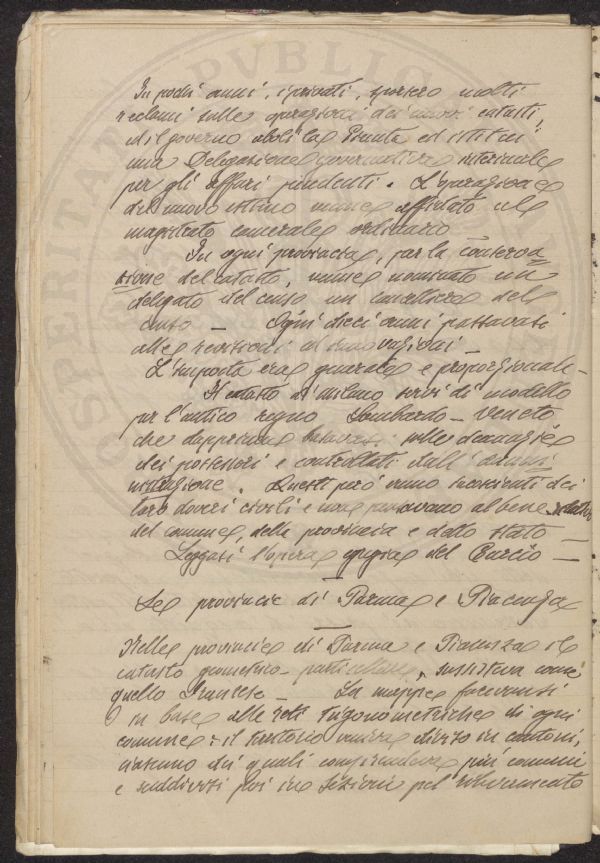 In pochi anni, i privati, sporsero molti
reclami sulle operazioni dei nuovi catasti,
ed il governo abolì la Giunta ed istituì
una Delegazione governativa interinale
per gli affari pendenti. L'operazione
del nuovo estimo venne affidato al
magistrato camerale ordinario
In ogni provincia, per la conserva
zione del catasto, venne nominato un
delegato del censo un cancelliere del
censo — Ogni dieci anni passavasi
alle revisioni e rinnovazioni —
L'imposta era generale e proporzionale —
Il catasto di Milano servì di modello
per l'antico regno Lombardo-Veneto
che dapprima basavasi sulle denunzie
dei possessori e controllati dall'ammi
nistrazione. Questi però erano incoscienti dei
loro doveri civili e non pensavano al bene
del comune, della provincia e dello stato —
Leggasi l'opera egregia del Curcio —
Le provincie di Parma e Piacenza
Nelle provincie di Parma e Piacenza il
catasto geometrico-particellare, sussisteva come
quello Francese — La mappa facevansi
in base alle reti trigonometriche di ogni
comune: il territorio veniva diviso in cantoni,
ciascuno dei quali comprendeva più comuni
e suddivisi poi in sezioni pel rilevamento